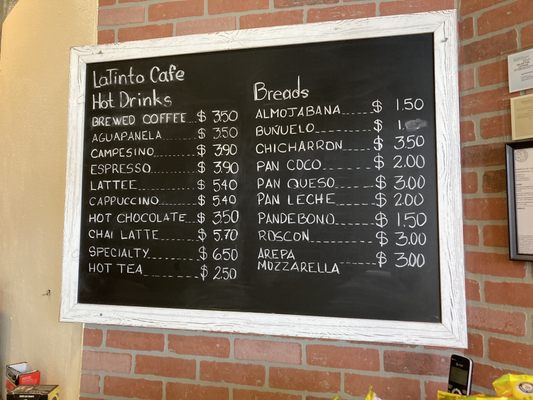 LaTinto Cafe
Hot Drinks
BREWED COFFEE $ 3.50
AGUAPANELA $ 3.50
CAMPESINO $ 3.90
ESPRESSO $ 3.90
LATTEE $ 5.40
CAPPUCCINO $ 5.40
HOT CHOCOLATE $ 3.50
CHAI LATTE $ 5.70
SPECIALTY $ 6.50
HOT TEA $ 2.50
Breads
ALMOJABANA $ 1.50
BUÑUELO $ 1.
CHICHARRON $ 3.50
PAN COCO $ 2.00
PAN QUESO $ 3.00
PAN LECHE $ 2.00
PANDEBONO $ 1.50
ROSCON $ 3.00
AREPA
MOZZARELLA $ 3.00